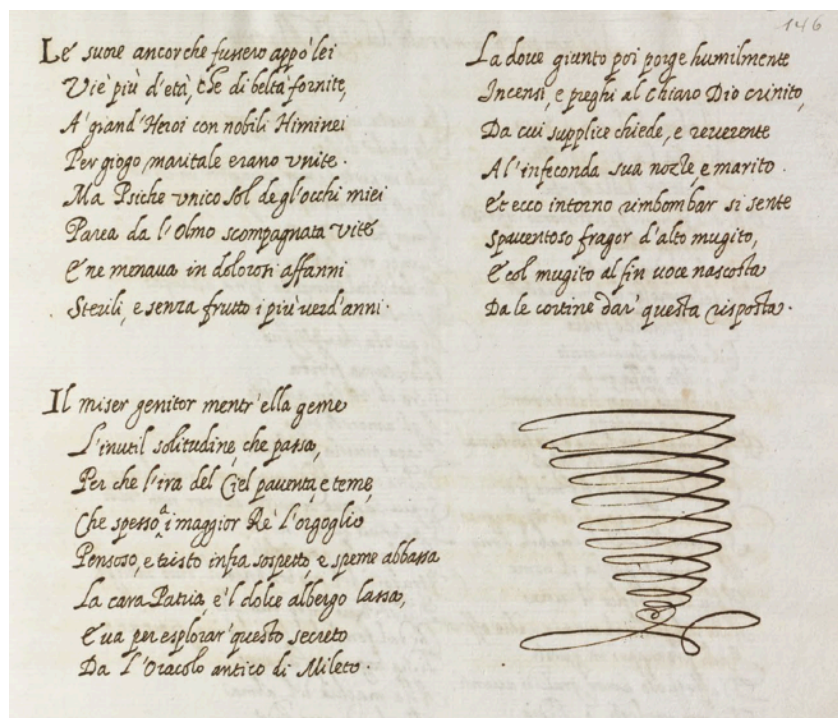 146
Le suore ancor che fussero appò lei
Vie più d'età, che di beltà fornite,
A' grand'Heroi con nobili Himinei
Per giogo maritale erano vnite.
Ma Psiche vnico sol degl'occhi miei
Parea da l'Olmo scompagnata vite
E ne menaua in dolorosi affanni
Sterili, e senza frutto i più verd'anni.
Il miser genitor mentr'ella geme
L'inutil solitudine, che passa,
Per che l'ira del Ciel pauenta, e teme,
Che spesso a i maggior Rè l'orgoglio
Pensoso, e tristo infra sospetto, e speme abbassa
La cara Patria, e'l dolce albergo lassa,
E ua per esplorar' questo secreto
Da l'Oracolo antico di Mileto.
La doue giunto poi porge humilmente
Incensi, e preghi al chiaro Dio crinito,
Da cui supplice chiede, e reuerente
A l'infeconda sua nozze, e marito.
Et ecco intorno rimbombar si sente
Spauentoso fragor d'alto mugito,
E col mugito al fin uoce nascosta
Da le cortine dar' questa risposta.